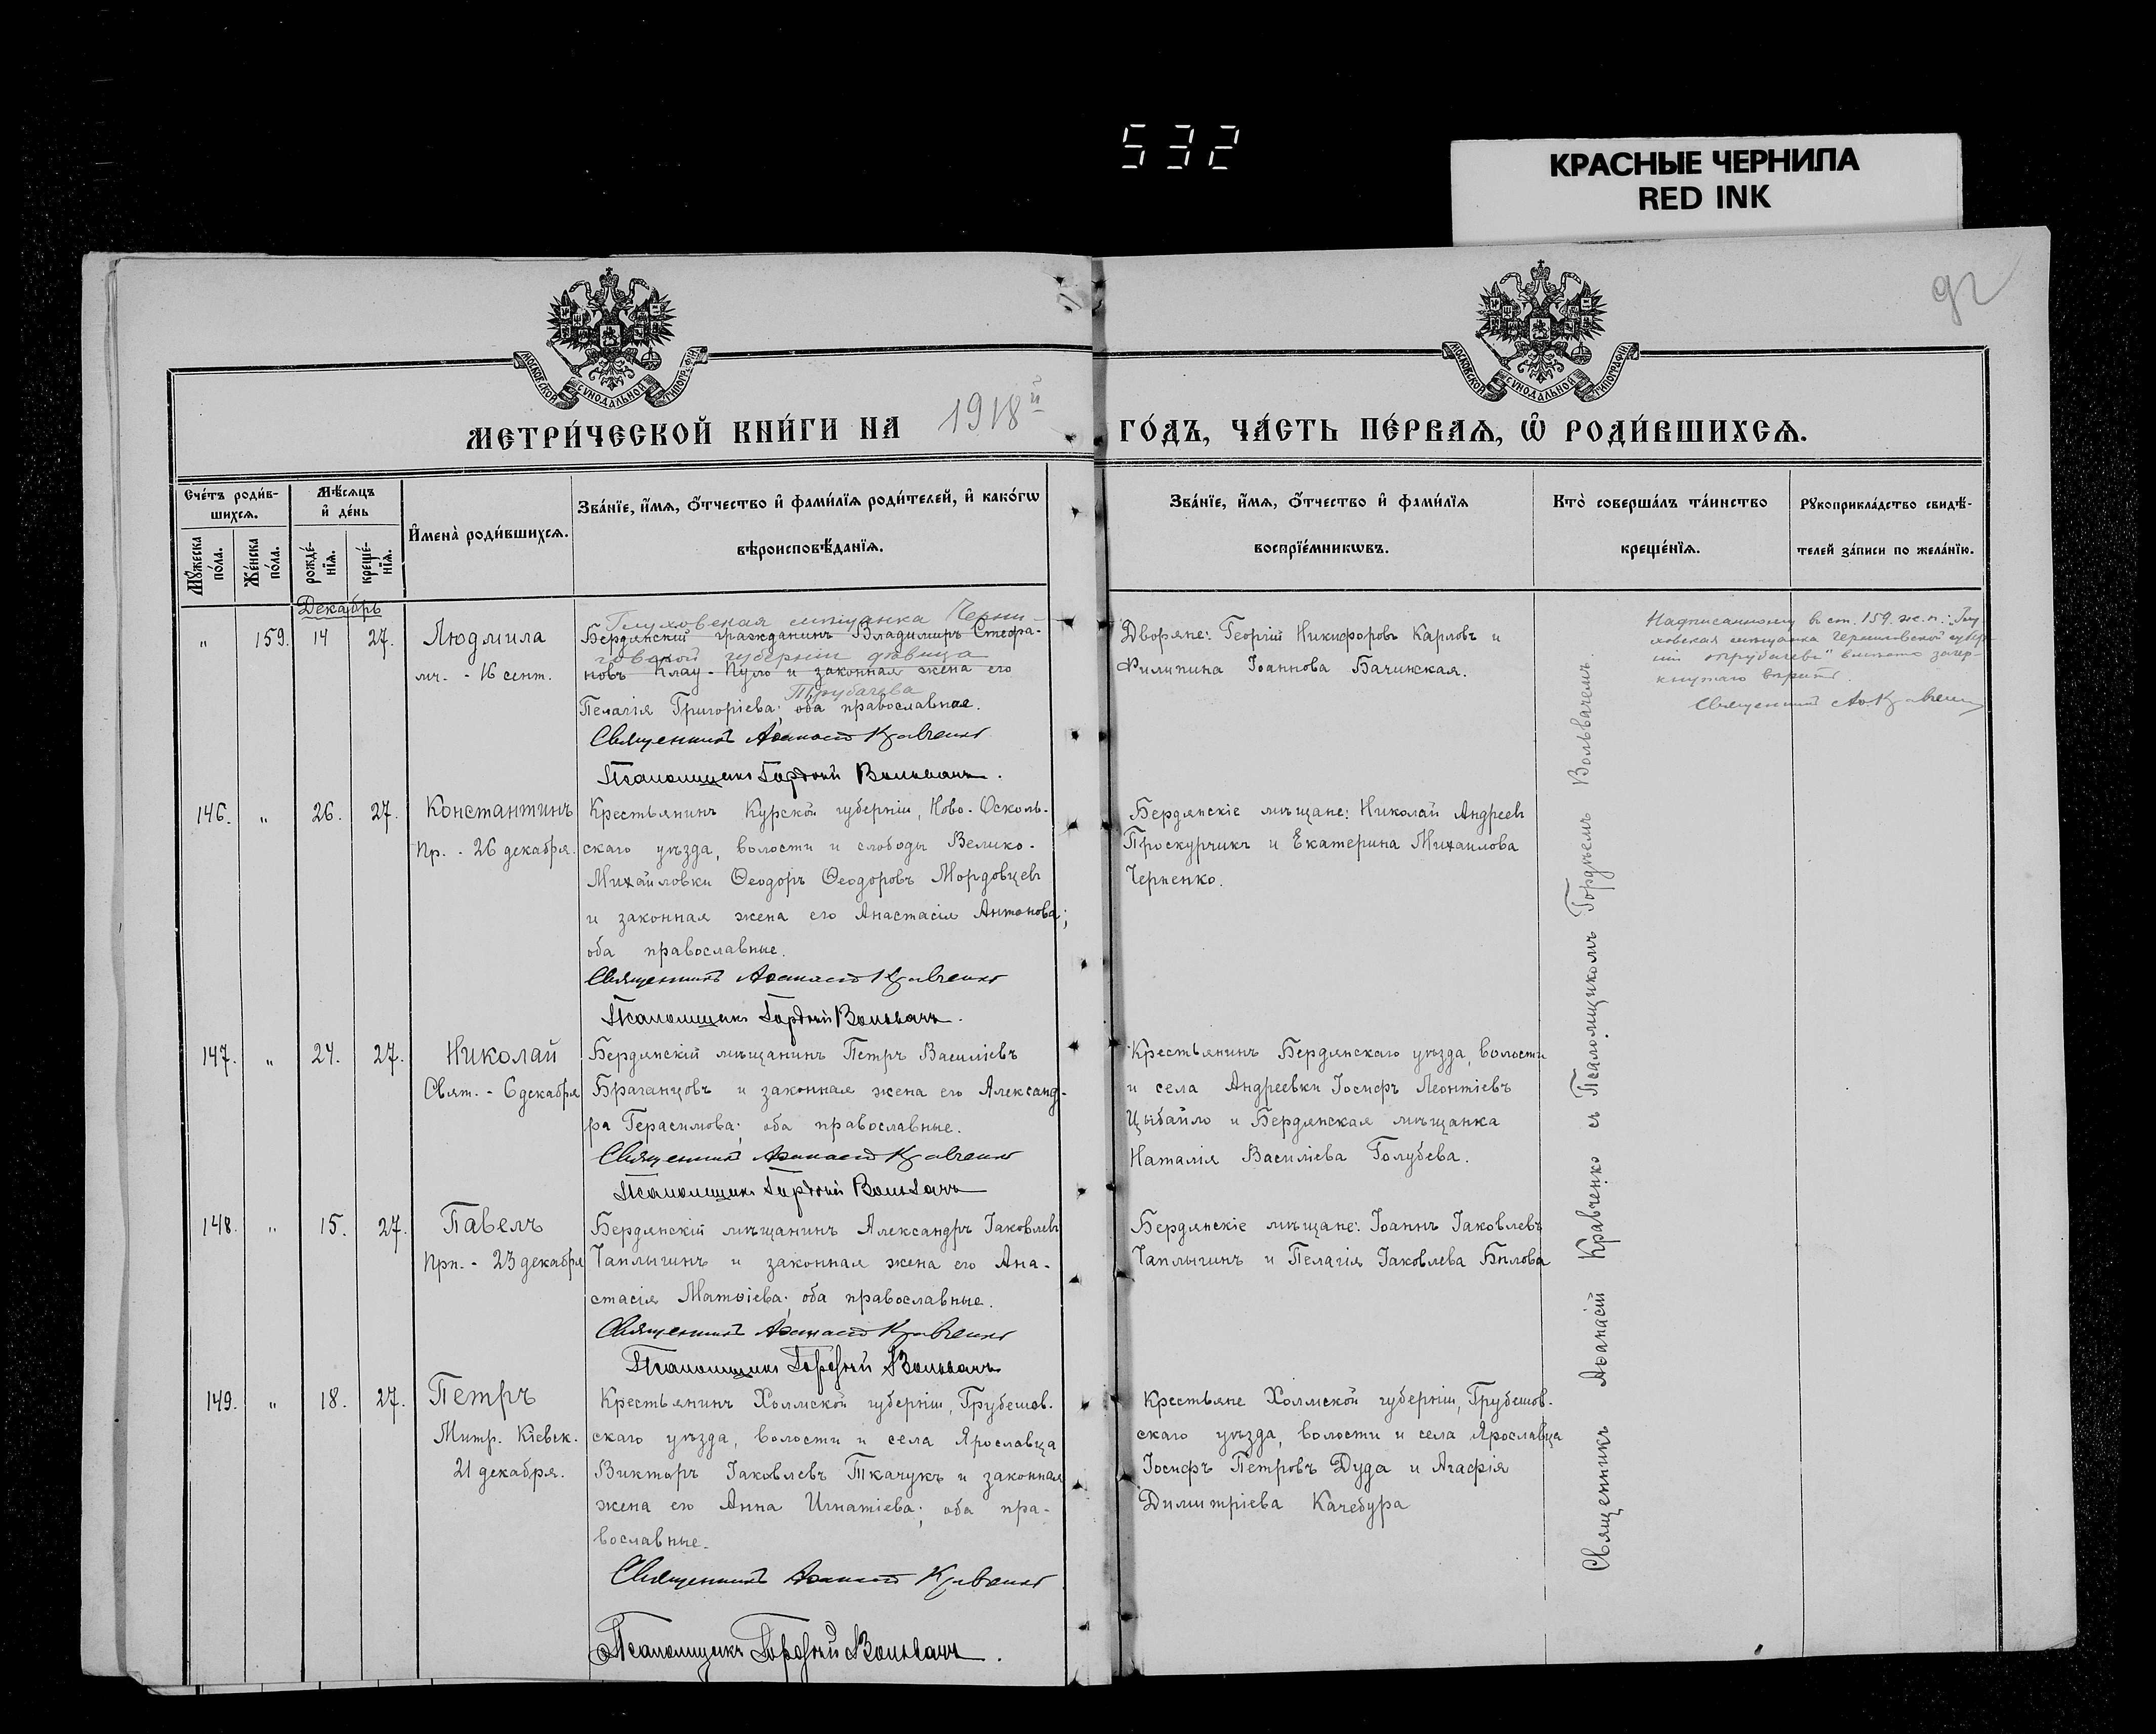 532
КРАСНЫЕ ЧЕРНИЛА
RED INK
92
МОСКОВСКОЙ СѴНОДАЛЬНОЙ ТИПОГРАФІИ
МОСКОВСКОЙ СѴНОДАЛЬНОЙ ТИПОГРАФІИ
МЕТРИ́ЧЕСКОЙ КНИ́ГИ НА 1918й ГО́ДЪ, ЧА́СТЬ ПЕ́РВАѦ, Ѡ РОДИ́ВШИХСѦ.
Сче́тъ роди́в-
шихсѧ.
Мѣ́сѧцъ
и де́нь
Мꙋ́жеска
по́ла.
Же́нска
по́ла.
рожде́-
нїѧ.
креще́-
нїѧ.
И҆мена̀ роди́вшихсѧ.
Зва́нїе, и҆́мѧ, о҆́тчество и҆ фами́лїѧ роди́телей, и҆ како́гѡ
вѣроисповѣ́данїѧ.
Зва́нїе, и҆́мѧ, о҆́тчество и҆ фами́лїѧ
воспрїе́мникѡвъ.
Кто̀ соверша́лъ та́инство
креще́нїѧ.
Рꙋкоприкла́дство свидѣ́-
телей за́писи по жела́нїю.
Декабрь
" 159. 14 27. Людмила
мч. - 16 сент.
Глуховская мѣщанка Черни-
Бердянскій гражданинъ Владимиръ Стефа-
говской губерніи дѣвица
новъ Клау-Пуло и законная жена его
Трубачева
Пелагія Григоріева; оба православная.
Священникъ Аѳанасій Кравченко
Псаломщикъ Гордѣй Вольвачъ.
Дворяне: Георгій Никифоровъ Карповъ и
Филипина Іоаннова Бачинская.
Надписанному в ст. 159. ж.п.: "Глу-
ховская мѣщанка Черниговской губер-
ніи Трубачева" вмѣсто зачер-
кнутаго вѣрить.
Священникъ Аѳ. Кравченко
146. " 26. 27. Константинъ
Пр. - 26 декабря.
Крестьянинъ Курской губерніи, Ново-Осколь-
скаго уѣзда, волости и слободы Велико-
Михайловки Ѳеодоръ Ѳеодоровъ Мордовцевъ
и законная жена его Анастасія Антонова;
оба православные.
Священникъ Аѳанасій Кравченко
Псаломщикъ Гордѣй Вольвачъ.
Бердянскіе мѣщане: Николай Андреевъ
Проскурчикъ и Екатерина Михаилова
Черненко.
147. " 24. 27. Николай
Свят. - 6 декабря
Бердянскій мѣщанинъ Петръ Василіевъ
Браганцовъ и законная жена его Александ-
ра Герасимова; оба православные.
Священникъ Аѳанасій Кравченко
Псаломщикъ Гордѣй Вольвачъ
Крестьянинъ Бердянскаго уѣзда, волости
и села Андреевки Іосифъ Леонтіевъ
Цыбайло и Бердянская мѣщанка
Наталія Василіева Голубева.
148. " 15. 27. Павелъ
Прп. - 23 декабря
Бердянскій мѣщанинъ Александръ Іаковлевъ
Чаплыгинъ и законная жена его Ана-
стасія Матѳіева; оба православные.
Священникъ Аѳанасій Кравченко
Псаломщикъ Гордѣй Вольвачъ
Бердянскіе мѣщане: Іоаннъ Іаковлевъ
Чаплыгинъ и Пелагія Іаковлева Бѣлова
149. " 18. 27. Петръ
Митр. Кіевск.
21 декабря.
Крестьянинъ Холмской губерніи, Грубешов-
скаго уѣзда, волости и села Ярославца
Викторъ Іаковлевъ Ткачукъ и законная
жена его Анна Игнатіева; оба пра-
вославные.
Священникъ Аѳанасій Кравченко
Псаломщикъ Гордѣй Вольвачъ.
Крестьяне Холмской губерніи, Грубешов-
скаго уѣзда, волости и села Ярославца
Іосифъ Петровъ Дуда и Агафія
Димитріева Качебура
Священникъ Аѳанасій Кравченко съ Псаломщикомъ Гордѣемъ Вольвачемъ.